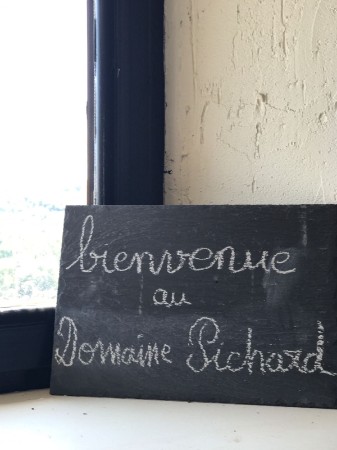 bienvenue
au
Domaine Pichard